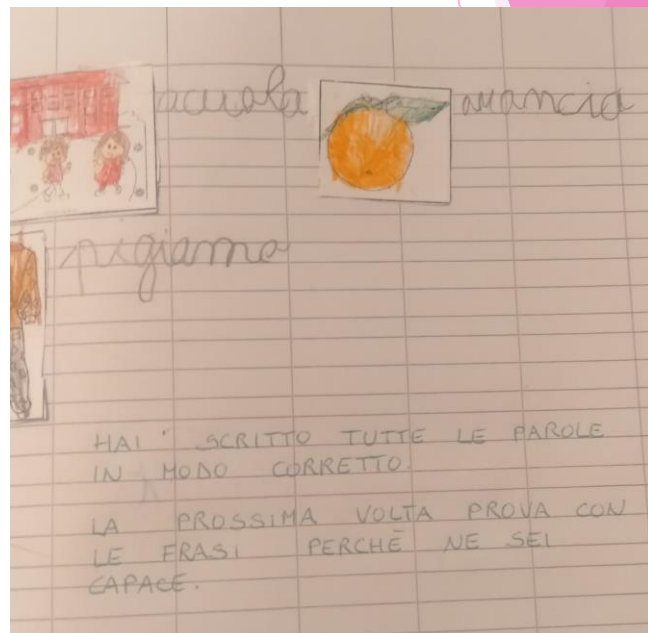 scuola arancia
pigiama
HAI SCRITTO TUTTE LE PAROLE
IN MODO CORRETTO.
LA PROSSIMA VOLTA PROVA CON
LE FRASI PERCHÈ NE SEI
CAPACE.